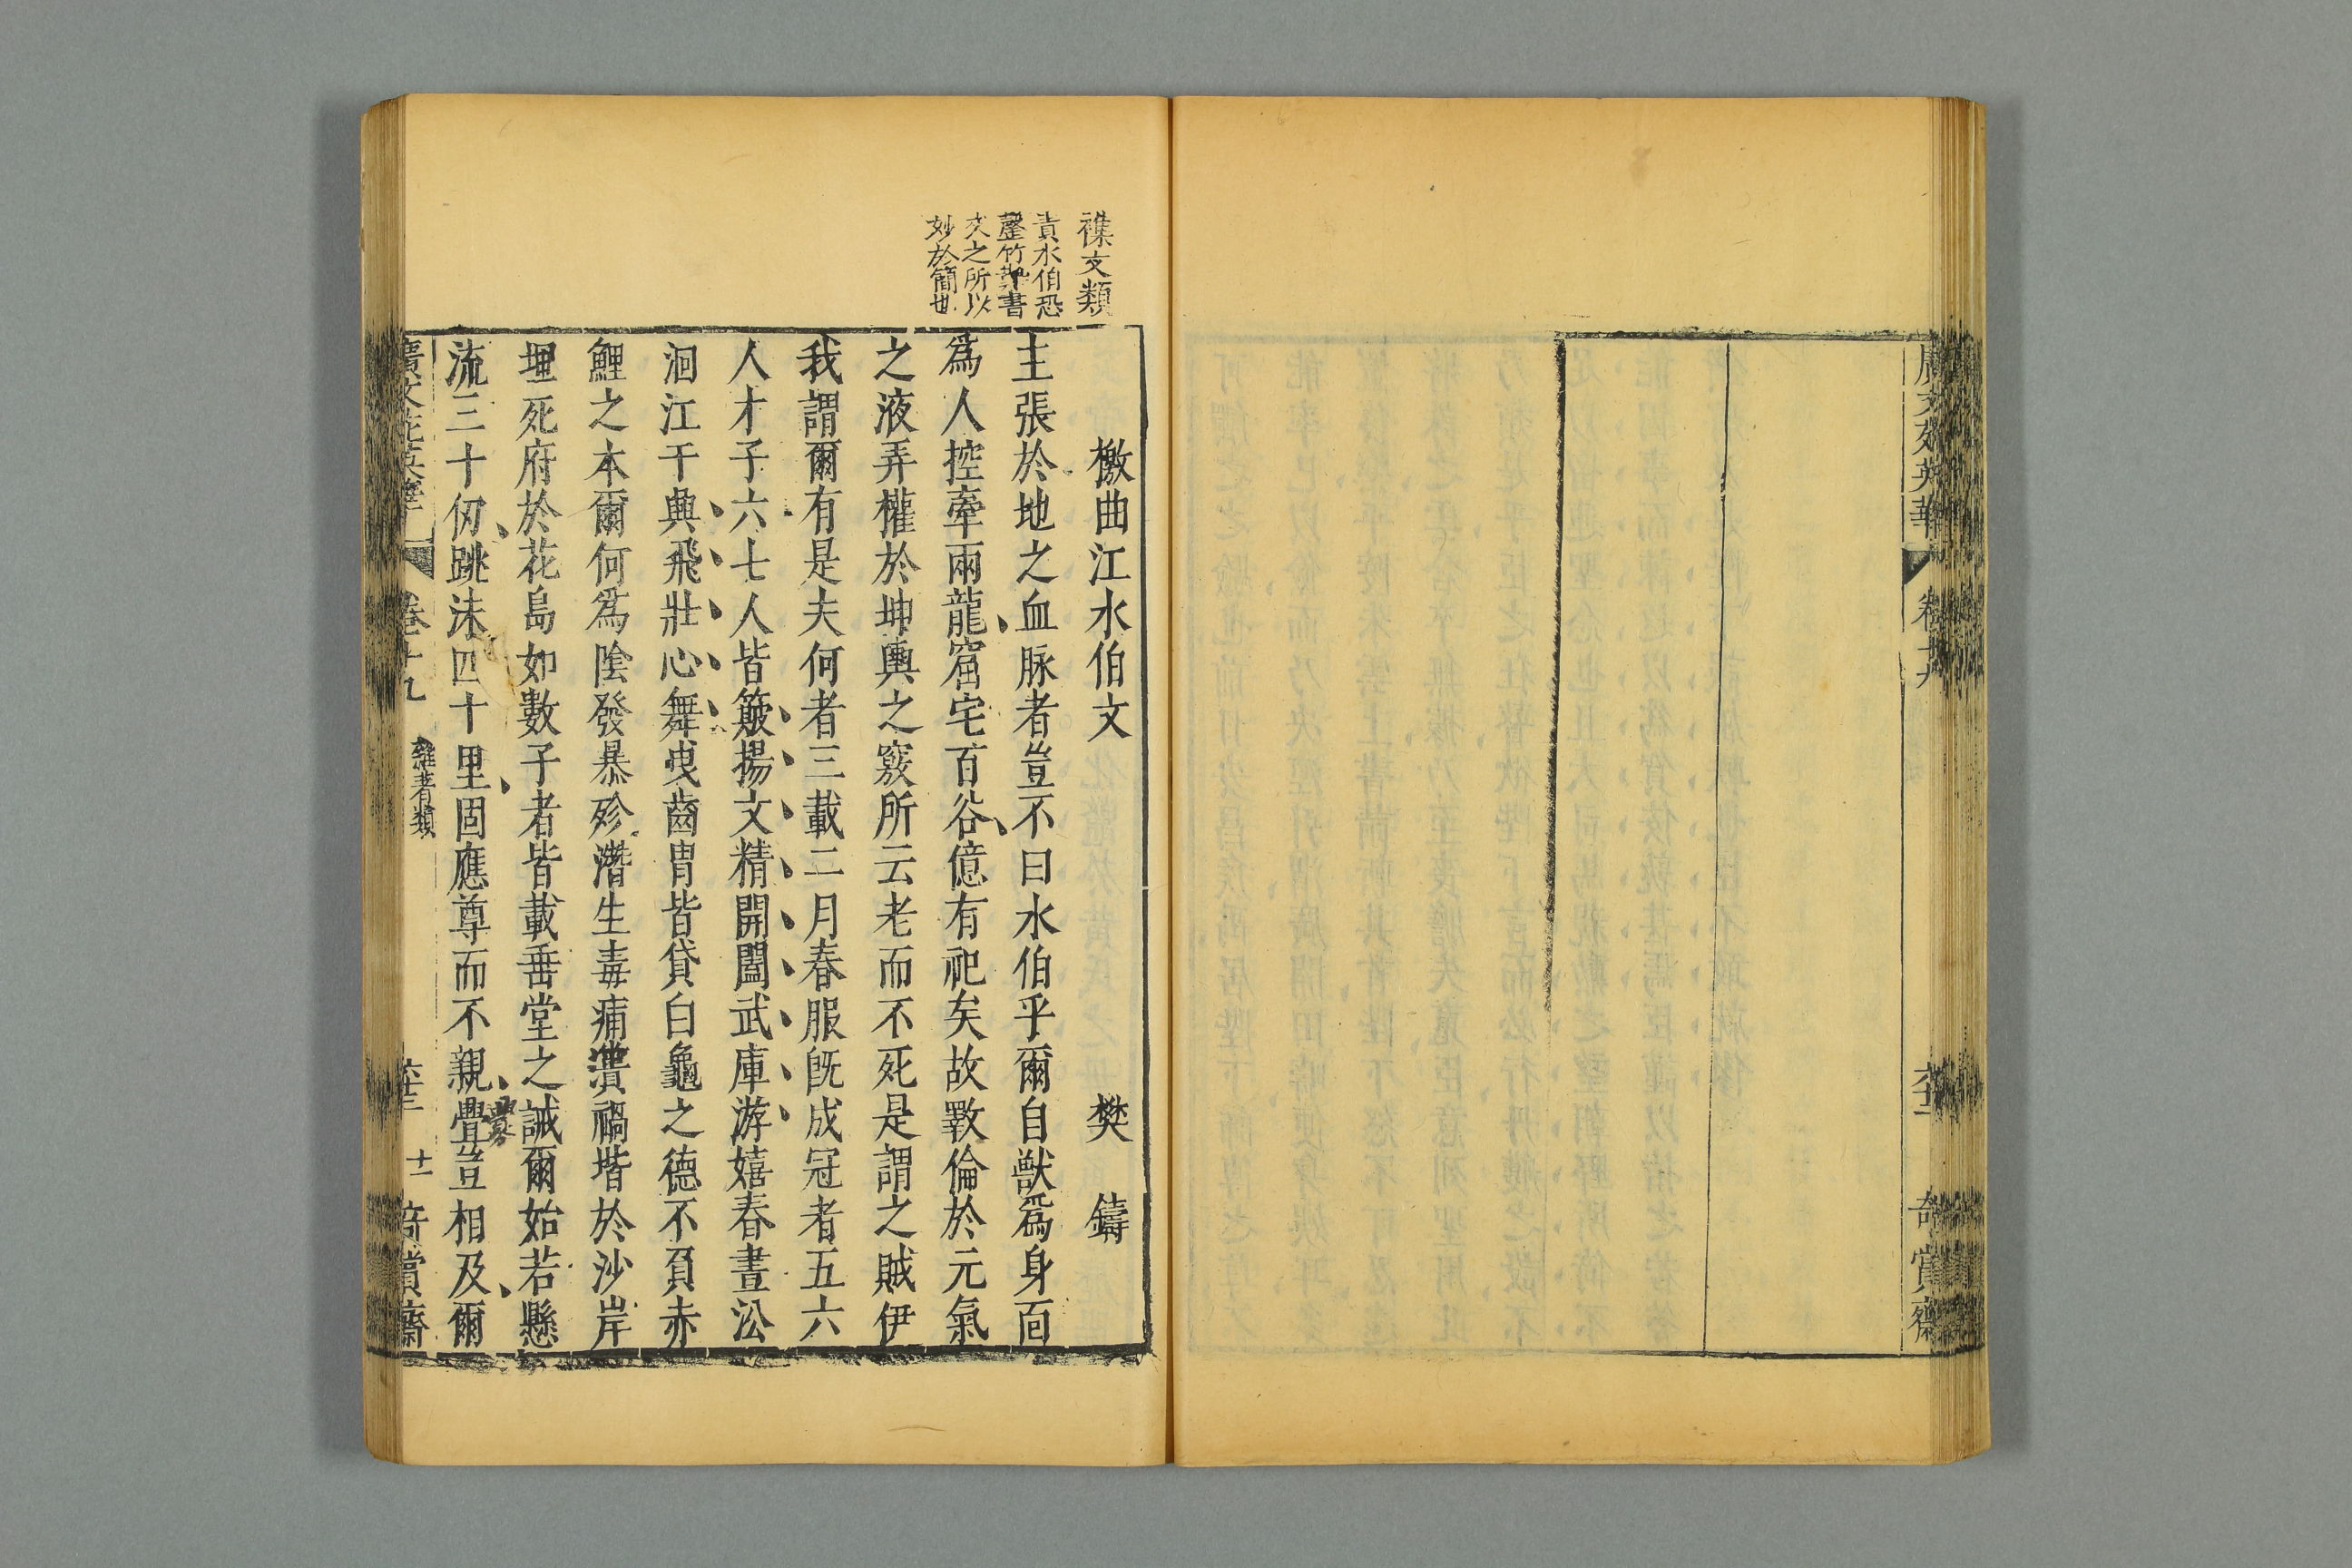 廣文苑英華
卷十九
奇賞齋
襍文類
責水伯恐
罄竹難書
文之所以
妙於簡也
檄曲江水伯文 樊鑄
主張於地之血脉者豈不曰水伯乎爾自獸爲身面
爲人控牽兩龍窟宅百谷億有祀矣故斁倫於元氣
之液弄權於坤輿之竅所云老而不死是謂之賊伊
我謂爾有是夫何者三載二月春服旣成冠者五六
人才子六七人皆簸揚文精開闔武庫游嬉春晝㳂
洄江干興飛壯心舞曳齒胄皆貸白龜之德不負赤
鯉之本爾何爲陰發暴殄潛生毒痡潰禍堦於沙岸
埋死府於花島如數子者皆載垂堂之誡爾始若懸
流三十仞跳沫四十里固應尊而不親疊豈相及爾
廣文苑英華
卷十九
雜著類
十一
奇賞齋